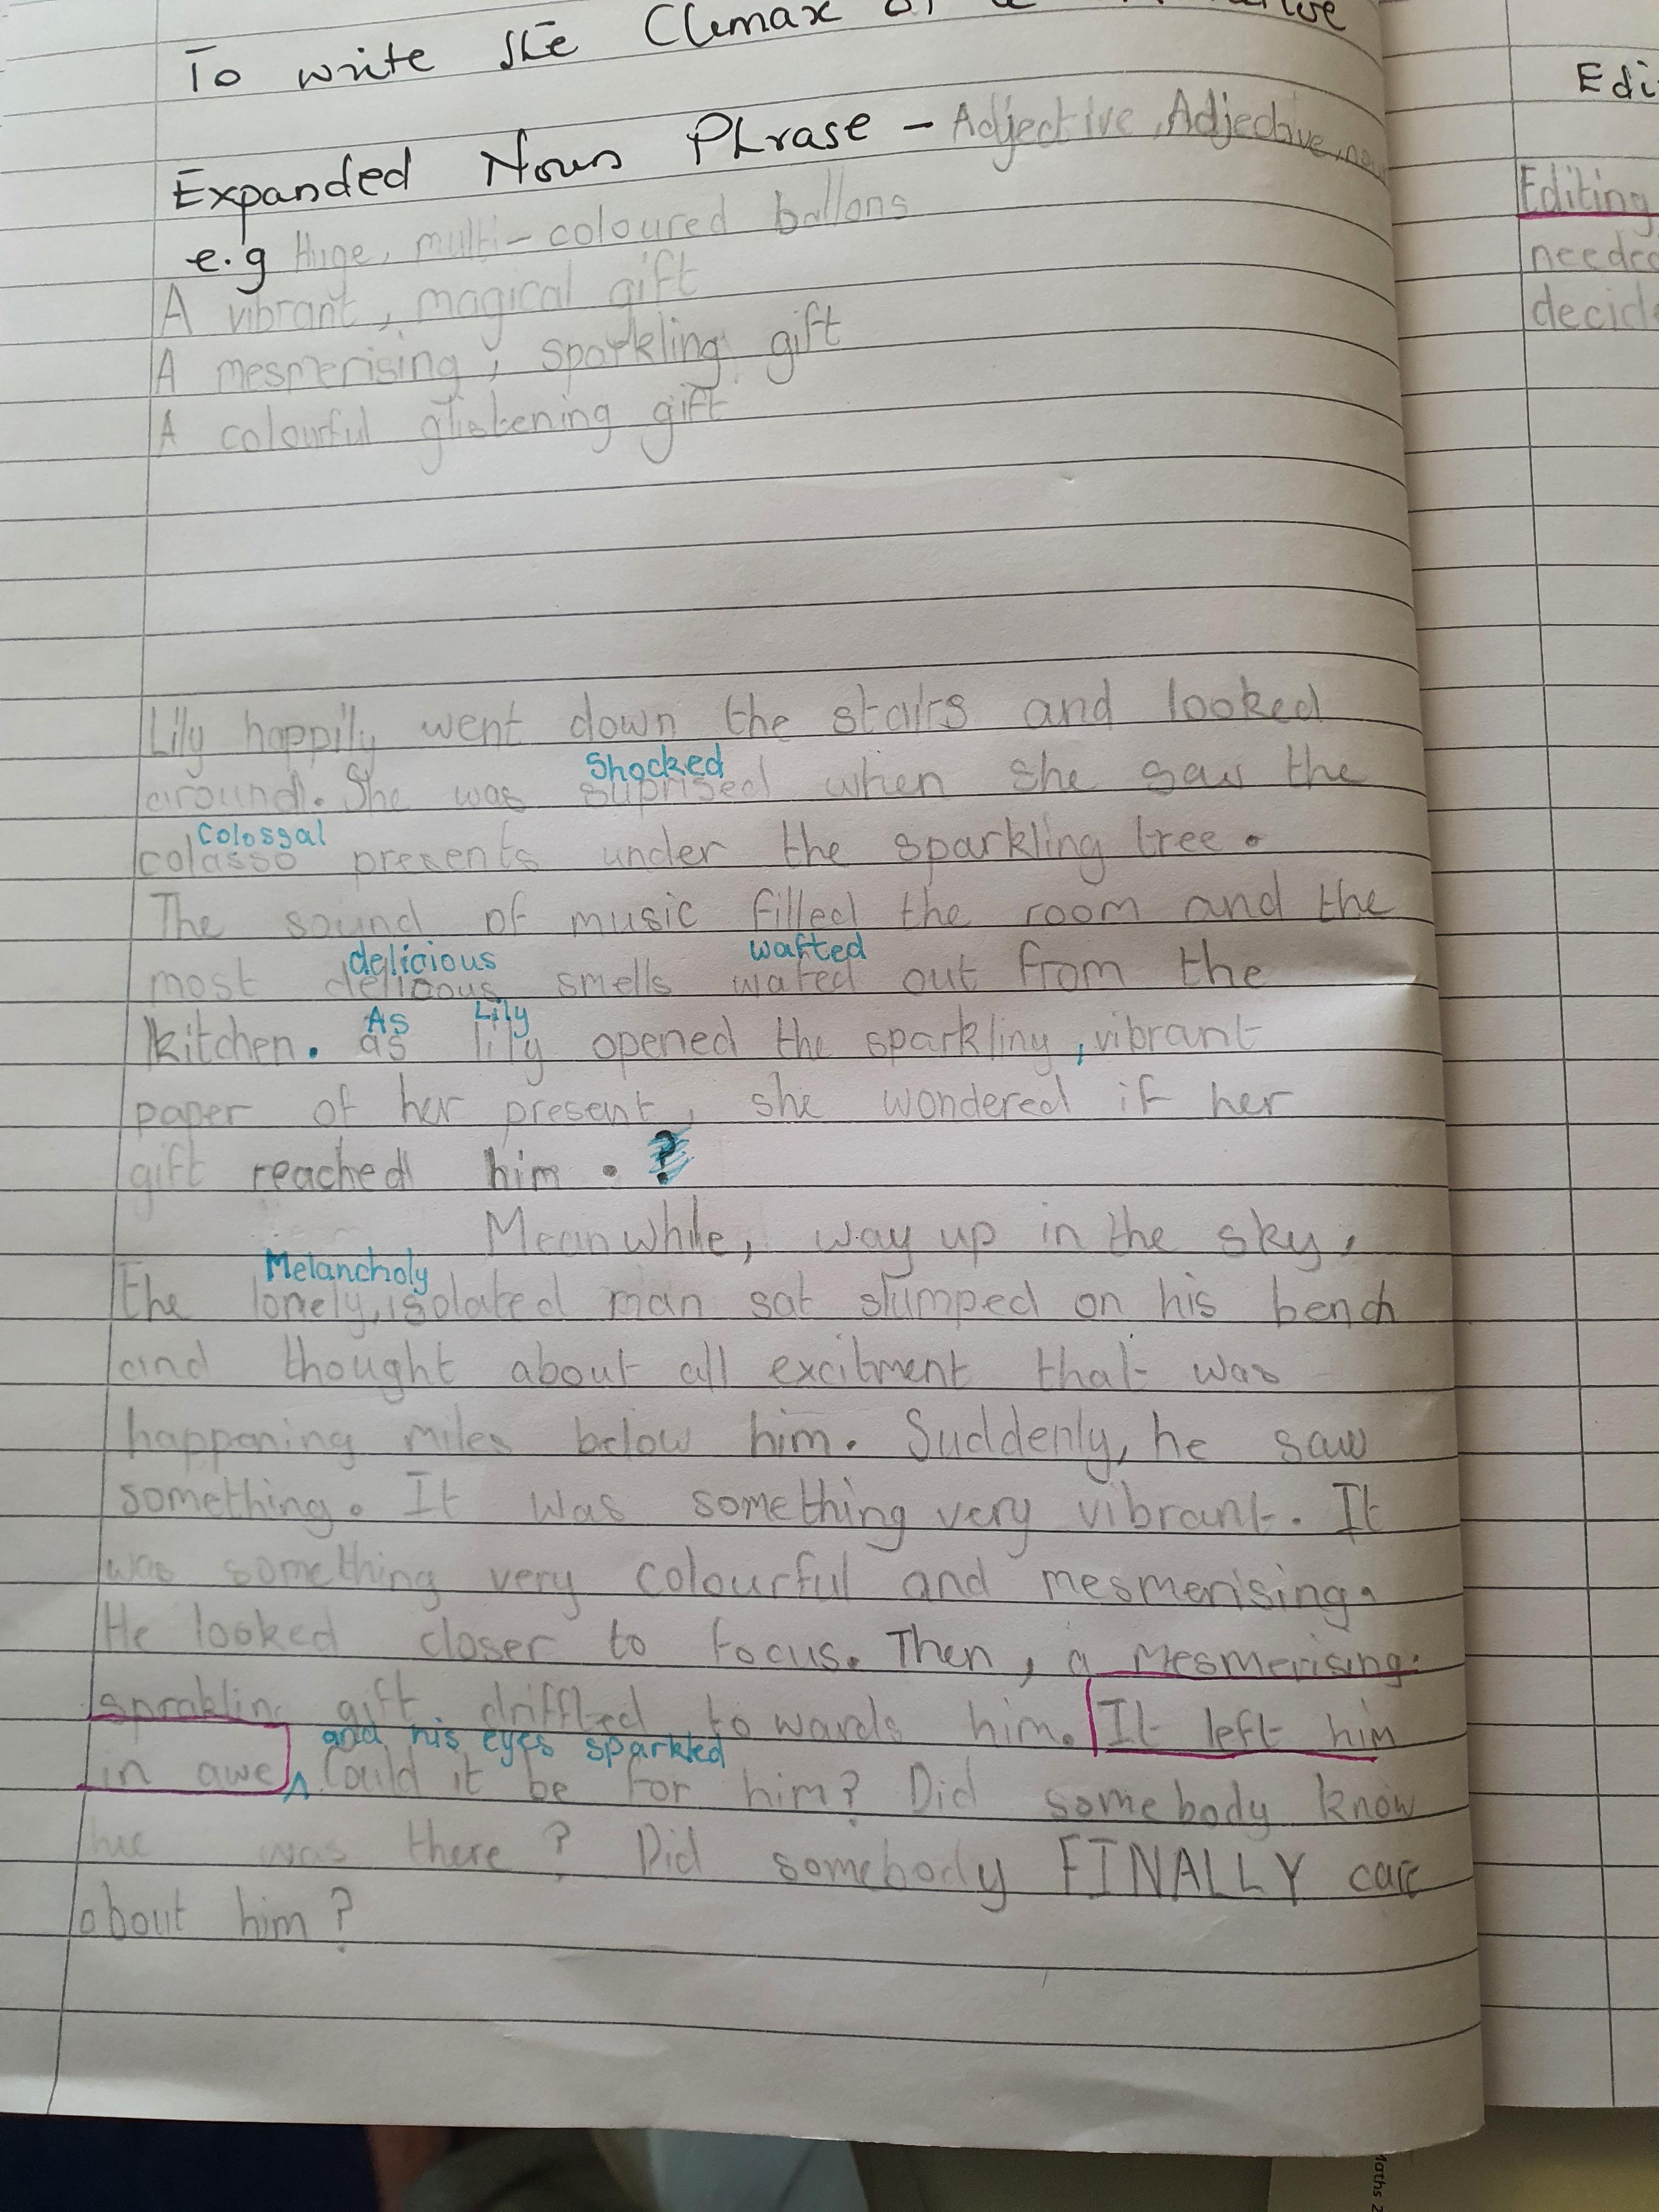 To write the Climax of a
Expanded Noun Phrase - Adjective, Adjective, noun
e.g Huge, multi-coloured ballons
A vibrant, magical gift
A mesmerising, sparkling gift
A colourful glistening gift
Lily happily went down the stairs and looked
Shocked
around. She was suprised when she saw the
Colossal
colasso presents under the sparkling tree.
The sound of music filled the room and the
delicious wafted
most delicous smells wated out from the
As Lily
kitchen. as lily opened the sparkliny, vibrant
paper of her present, she wondered if her
gift reached him. ?
Meanwhile, way up in the sky,
Melancholy
the lonely, isolated man sat slumped on his bench
and thought about all excitment that was
happaning miles below him. Suddenly, he saw
something. It was something very vibrant. It
was something very colourful and mesmerising.
He looked closer to focus. Then, a mesmerising.
spraklin gift driffted towards him. It left him
and his eyes sparkled
in awe ^ Could it be for him? Did somebody know
he was there? Did somebody FINALLY care
about him?
Edi
Editing
needed
decide
Maths 2